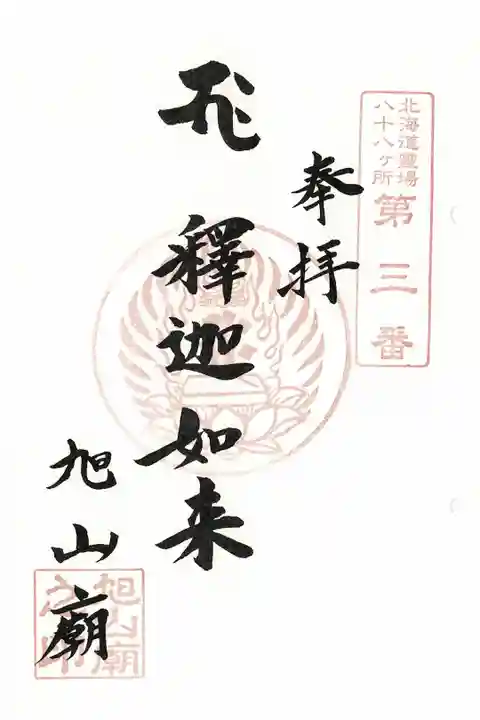 北海道霊場
八十八ヶ所
第三番
奉拝
釋迦如来
旭山廟
旭山廟
之印